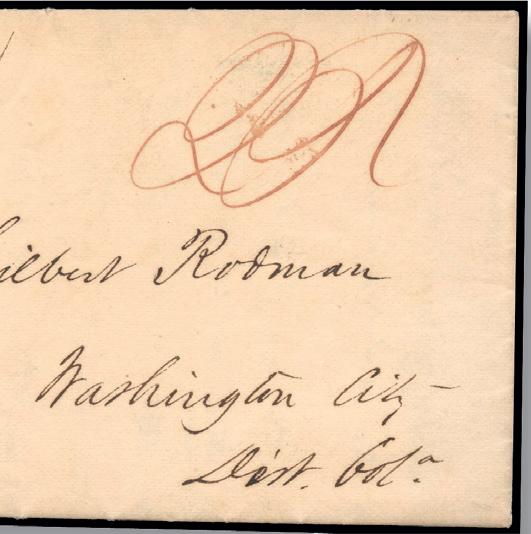 Gilbert Rodman
Washington City
Dist. Cola